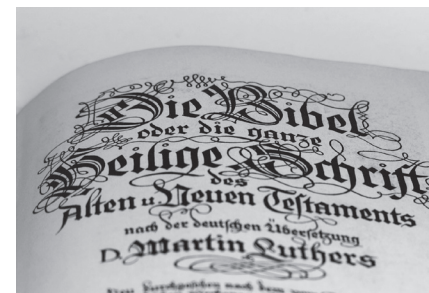 Die Bibel
oder die ganze
Heilige Schrift
des
Alten u. Neuen Testaments
nach der deutschen Übersetzung
D. Martin Luthers
nach dem